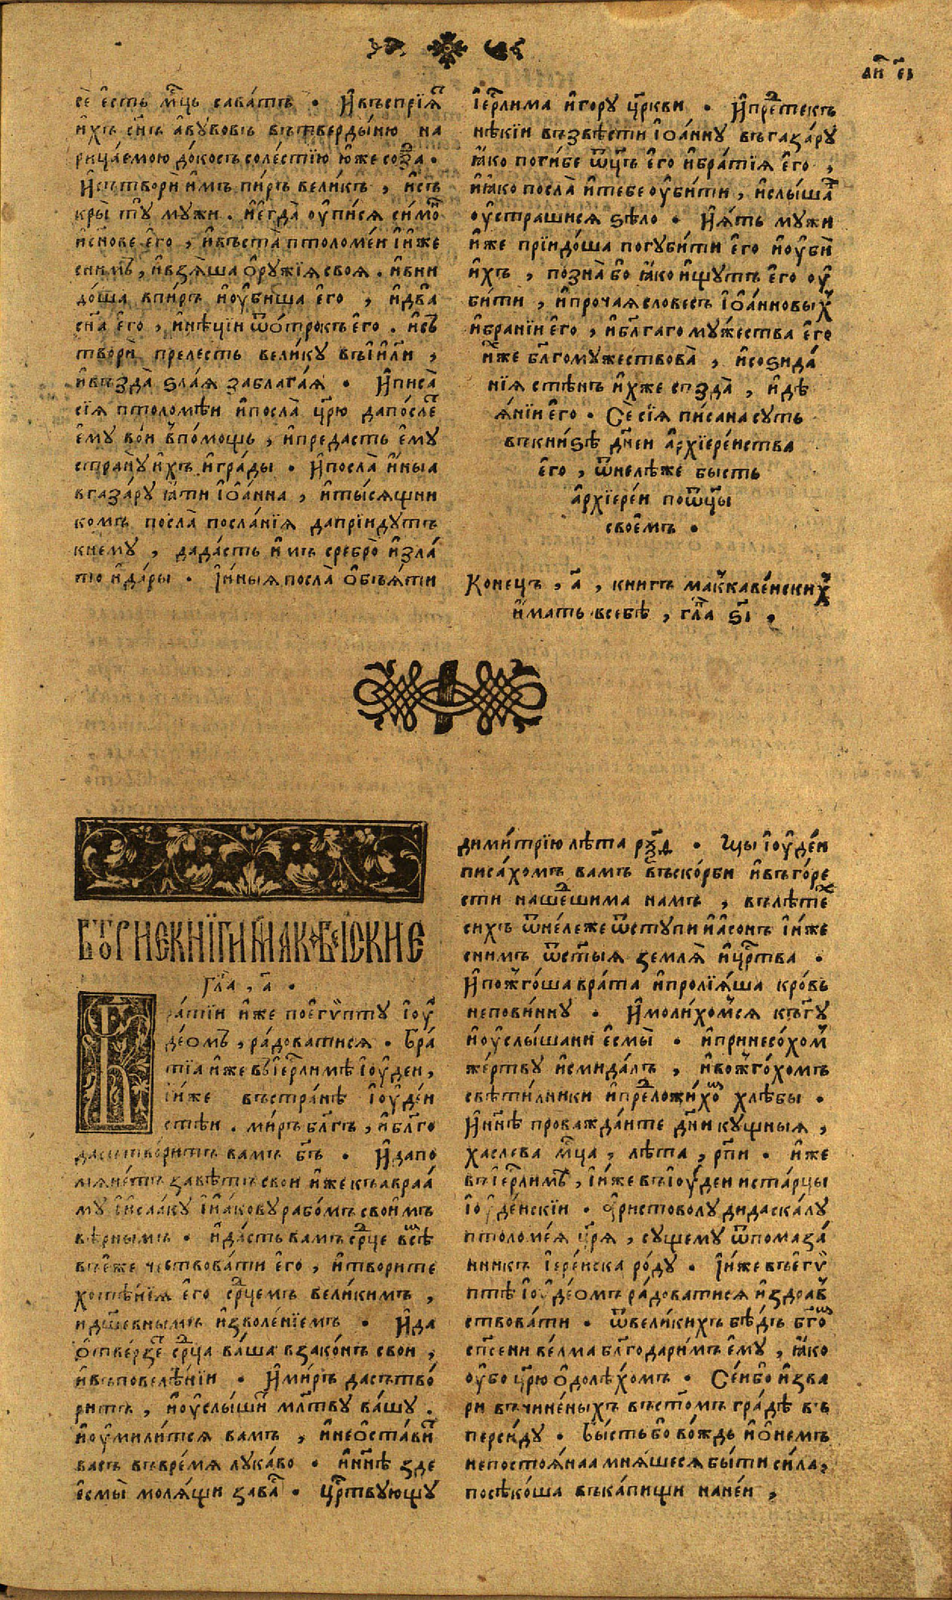 се́ е́сть мц҃ь сава́тъ . И҆въспрїя
и҆хъ сн҃ъ а҆вувовъ вътвердыню на
рица́емою до́косъ со лестїю ю҆же созда .
И҆сътвори и҆мъ пи́ръ вели́къ , и҆съ
кры ту мужи . и҆е҆гда̀ ѹ҆пися си́мо
и҆сн҃ове е҆го , и҆въста̀ птоломе́и и҆и҆же
сни́мъ , и҆взя́ша ѻ҆ру́жїя своя . и҆вни
до́ша впи́ръ и҆ѹ҆би́ша е҆го , и҆два̀
сн҃а е҆го , и҆нѣ́цїи ѿо́трокъ е҆го . и҆съ
творѝ преле́сть вели́ку въі҆и҃ли ,
и҆въздà ѕла́я забл҃га́я . И҆писа̀
сїя птоломѣи и҆посла̀ цр҃ю да после
е҆му во́и впо́мощь , и҆преда́сть е҆му
страну и҆хъ и҆гра́ды . И҆посла̀ и҆ныа
вгаза́ру ꙗ҆ти і҆ѻ҆а́нна , и҆ты́сящни
комъ посла̀ посла́нїя да прїи́дутъ
кнему , дада́сть и҆мъ сребро̀ и҆зла́
то и҆да́ры . І҆и҆ны́я посла̀ ѻ҆бъя́ти
і҆ерл҃има и҆гору цр҃кви . И҆претекъ
нѣ́кїи възвѣсти і҆ѻ҆а́нну въгаза́ру
ꙗ҆ко поги́бе ѿц҃ъ е҆го̀ и҆бра́тїя е҆го ,
и҆ꙗ҆ко посла̀ и҆тебе ѹ҆би́ти , и҆слы́ша
ѹ҆страши́ся ѕѣло . И҆я́тъ мужи
и҆же прїидо́ша погуби́ти е҆го и҆ѹ҆би
и҆хъ , позна̀ бо ꙗ҆ко и҆щутъ е҆го ѹ҆
би́ти , и҆про́чая слове́съ і҆ѻ҆а́нновы
и҆бра́нїи е҆го , и҆бл҃гаго му́жества е҆го
и҆́же бл҃гомужествова̀ , и҆созида́
нїя стѣ́нъ и҆хже созда̀ , и҆дѣ
я́нїи е҆го . Сѐ сїя пи́сана суть
въкни́ѕѣ дн҃еи а҆рхїере́иства
е҆го , ѿне́лѣже бысть
а҆рхїере́и поѿц҃ы
свое́мъ .
Коне́цъ , а҃ , книгъ маккаве́иских
и҆мать всебѣ , гл҃а ѕ҃і .
ВТОРИ Е КНИГИ МАККАВѢИСКИЕ
Гл҃а , а҃ .
ра́тїи и҆же пое҆ги́пту і҆ѹ
де́омъ , ра́доватися . Бра́
тїа и҆же въі҆ерл҃имѣ і҆ѹ҆де́и ,
і҆и҆же въстра́нѣ і҆ѹ҆де́и
стѣи . ми́ръ бл҃гъ , и҆бл҃го
да сътвори́тъ вамъ бг҃ъ . И҆да по
мяне́тъ завѣ́тъ свои и҆же къавраа́
му і҆и҆са́аку і҆и҆а́кову рабо́мъ свои́мъ
вѣ́рнымъ . и҆да́сть вамъ ср҃це всѣ
въе́же чествова́ти е҆го , и҆твори́те
хотѣ́нїя е҆го ср҃цемъ вели́кимъ ,
и҆дш҃евнымъ и҆зволе́нїемъ . И҆да
ѻ҆тве́рзе ср҃ца ва́ша взако́нъ свои ,
и҆въповелѣ́нїи . И҆ми́ръ да сътво́
ритъ , и҆ѹ҆слы́ши мл҃тву ва́шу .
и҆ѹ҆мили́тся вамъ , и҆неѻ҆ста́ви
васъ въвре́мя лука́во . и҆нн҃ѣ зде
е҆смы̀ моля́щи зава . цр҃твующу
дими́трїю лѣта рѯ҃д . Мы і҆ѹ҆де́и
писа́хомъ вамъ въско́рби и҆въго́ре
сти наше́шима намъ , вълѣте
сихъ ѿне́леже ѿступи и҆а́сонъ і҆и҆же
сни́мъ ѿст҃ыя земля̀ и҆цр҃тва .
И҆пожго́ша врата́ и҆пролїя́ша кро́вь
непови́нну . И҆моли́хомся къгу҃
и҆ѹ҆слы́шани е҆смы̀ . и҆принесо́хом
же́ртву и҆смида́лъ , и҆вожго́хомъ
свѣти́лники и҆предложи́хо хлѣ́бы .
И҆нн҃ѣ проважда́ите дн҃и ку́щныя ,
хаслева мц҃а , лѣта , рп҃и . и҆же
въі҆ерл҃имѣ , і҆и҆же въі҆ѹ҆де́и и ста́рцы
і҆ѹ҆де́искїи . а҆ристоволу дидаска́лу
птоломе́я цр҃я , су́щему ѿпомаза́
нникъ і҆ере́иска ро́ду . І҆и҆же въе҆гѵ
птѣ і҆ѹ҆де́омъ ра́доватися и҆здрав
ствова́ти . ѿвели́кихъ бѣ́дъ бг҃о
сп҃сени ве́лма бл҃года́римъ е҆му , ꙗ҆ко
ѹ҆бо цр҃ю ѻ҆долѣ́хомъ . Се́и бо и҆зва
ри въчине́ныхъ въсто́мъ гра́дѣ въ
перси́ду . Бы́сть бо во́ждь и҆ѻ҆не́мъ
непостоя́наа мня́шеся бы́ти си́ла ,
посѣко́ша въка́пищи нане́и ,